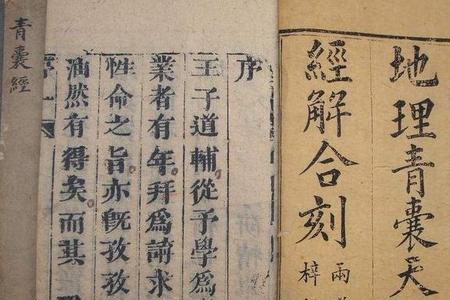 地理青囊天
經解合刻
兩
梓
序
王子道輔從予學爲
業者有年拜爲請求
性命之旨亦既孜孜
油然有得矣而其
青囊經